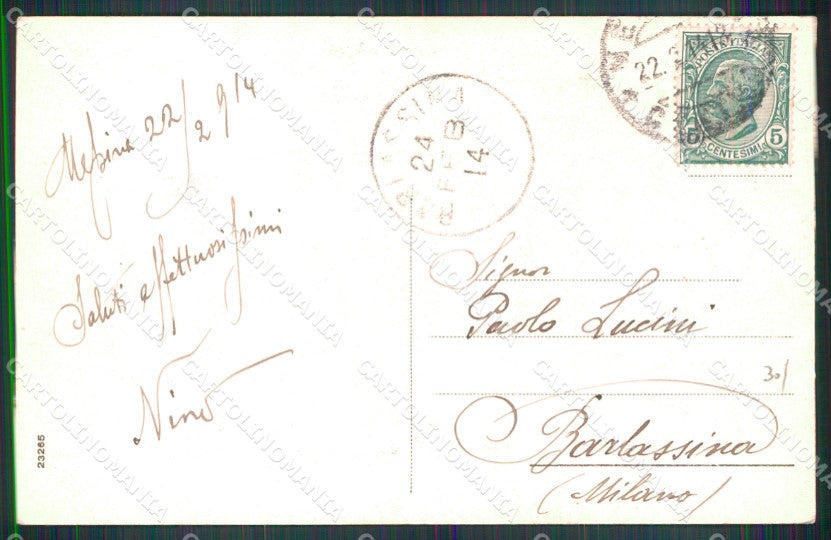 Messina 22/2 914
Saluti affettuosissimi
Nino
23265
BARLASSINA
24
FEB
14
22.2
POSTE ITALIANE
5
CENTESIMI
5
Signor
Paolo Lucini
30/
Barlassina
(Milano)
CARTOLINOMANIA